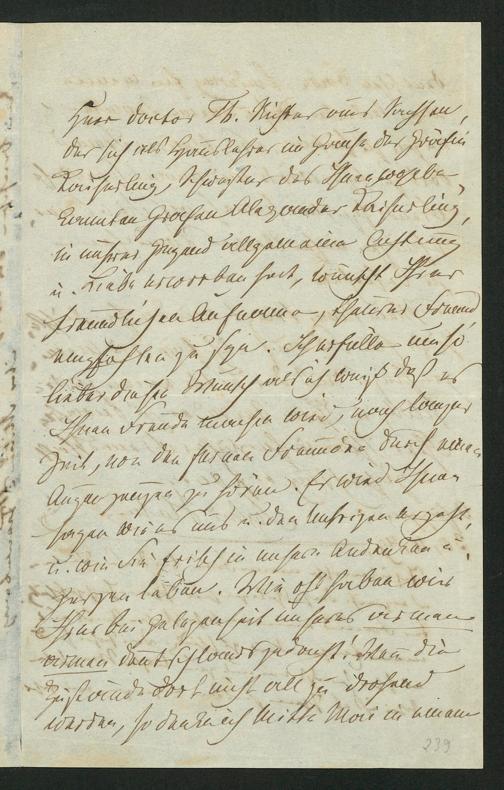 Herr doctor Th. Richter aus Sachsen,
der sich als Hauslehrer im Hause der Gräfin
Kaiserling, Schwester des Ihnen so gebe-
kannten Grafen Alexander Kaiserling,
in unsrer Gegend allgemeine Achtung
u. Liebe erworben hat, wünscht Ihrer
freundlichen Aufnahme, theurer Freund
empfohlen zu sein. Ich erfülle um so
lieber diesen Wunsch als ich weiß daß es
Ihnen Freude machen wird, nach langer
Zeit, von den fernen Freunden durch einen
Augenzeugen zu hören. Er wird Ihnen
sagen wie es uns u. den Unsrigen ergeht,
u. wie Sie frisch in unserm Andenken u.
Herzen leben. Wie oft haben wir
Ihrer bei Gelegenheit unseres armen
armen deutschlands gedacht! Wenn die
Zustände dort nicht all zu drohend
werden, so denke ich Mitte Mai in einem
239